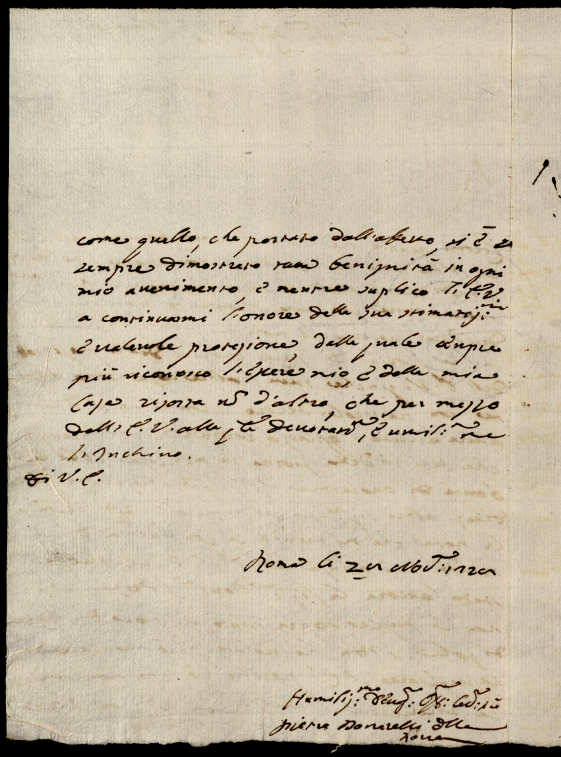 come quello, che portato dall'affetto, si è
sempre dimostrato tutta benignità in ogni
mio avenimento, è mentre suplico l'E. V.
a continuarmi l'onore della sua stimatis:ma
è valevole protezione, dalla quale sempre
più riconosco l'essere mio, è della mia
Casa risorta nō d'altro, che per mezzo
dell'E. V. alla q.le devotam.te, è umilm.te me
l'Inchino.
Di V. E.
Roma li
Humiliss:mo
Pietro Donatelli della